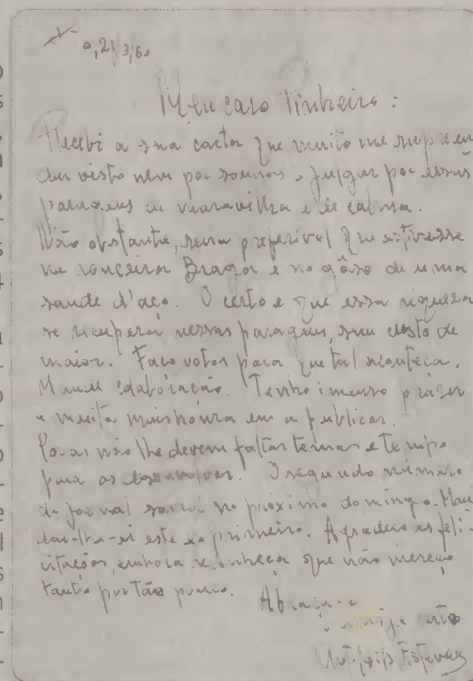 0,21/3/60
Meu caro Pinheiro:
Recebi a sua carta que muito me surpreen
deu visto nem por sonhos o julgar por essas
paragens de maravilha e de calma.
Não obstante, seria preferível que estivesse
na ronceira Braga e no gôso de uma
saude d'aço. O certo é que essa riqueza
se recupera nessas paragens, sem custo de
maior. Faço votos para que tal aconteça.
Mande colaboração. Tenho imenso prazer
e muita mais honra em a publicar.
Por aí não lhe devem faltar temas e tempo
para os desenvolver. O segundo número
do jornal sairá no próximo domingo. Man
dar-lhe-ei este e o primeiro. Agradeço as feli-
citações, embora reconheça que não mereço
tanto por tão pouco.
Abraça-o
o amigo certo
Esteves